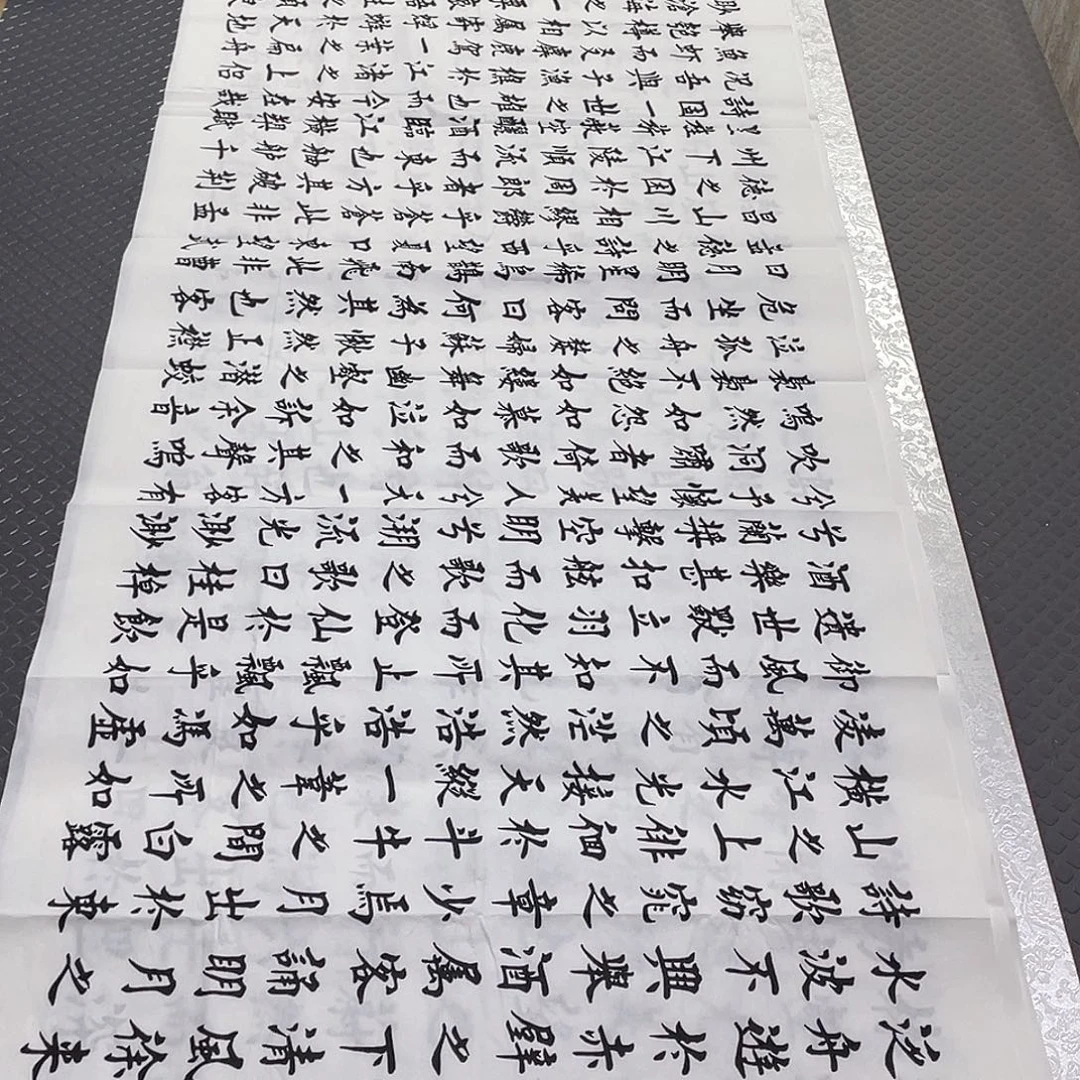 泛舟遊於赤壁之下清風徐來
水波不興舉酒屬客誦明月之
詩歌窈窕之章少焉月出於東
山之上徘徊於斗牛之間白露
橫江水光接天縱一葦之所如
凌萬頃之茫然浩浩乎如馮虛
御風而不知其所止飄飄乎如
遺世獨立羽化而登仙於是飲
酒樂甚扣舷而歌之歌曰桂棹
兮蘭槳擊空明兮溯流光渺渺
兮予懷望美人兮天一方客有
吹洞嘯者倚歌而和之其聲鳴
嗚然如怨如慕如泣如訴余音
裊裊不絕如縷舞幽壑之潛蛟
泣孤舟之嫠婦蘇子愀然正襟
危坐而問客曰何為其然也客
曰月明星稀烏鵲南飛此非曹
孟德之詩乎西望夏口東望武
昌山川相繆鬱乎蒼蒼此非孟
德之困於周郎者乎方其破荊
州下江陵順流而東也舳艫千
里旌旗蔽空釃酒臨江橫槊賦
詩固一世之雄也而今安在哉
況吾與子漁樵於江渚之上侶
魚蝦而友麋鹿駕一葉之扁舟